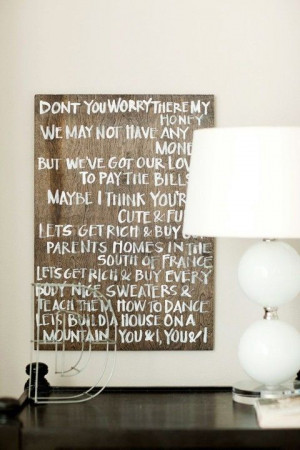 DONT YOU WORRY THERE MY
HONEY
WE MAY NOT HAVE ANY
MONE
BUT WE'VE GOT OUR LOV
TO PAY THE BILLS
MAYBE I THINK YOU'R
CUTE & FU
LETS GET RICH & BUY OU
PARENTS HOMES IN THE
SOUTH OF FRANCE
LETS GET RICH & BUY EVERY
BODY NICE SWEATERS &
TEACH THEM HOW TO DANCE
LETS BUILD A HOUSE ON A
MOUNTAIN YOU & I, YOU & I